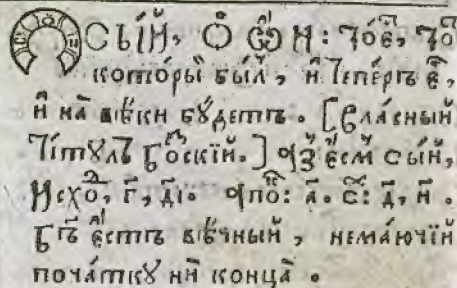 Ѻ СЫ́Й, Ѻ҆ Ѿ҆́Н: то́е, то
кото́ры бы́л, и҆ Тепе́ръ є҆,
и҆ на вѣ́ки бу́детъ. [ Вла́сный
Ті́тꙋлъ бо́скїй. ] ꙗ҆́ є҆́смъ сы́й,
Исхо́, г҃, ді҃. апо: а҃. с: д҃, и҃.
Бг҃ъ є҆́стъ вѣ́чный, нема́ючїй
поча́ткꙋ ни конца̀.